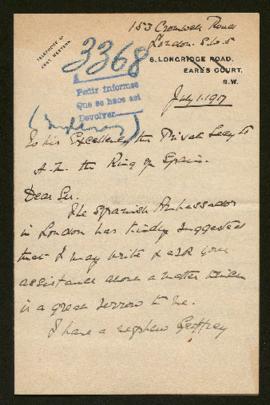 153 Cromwell Road
London. S.W. 5
TELEPHONE Nº
WESTERN
6, LONGRIDGE ROAD,
EARLS COURT,
S.W.
3368
Pedir informes
Que se hace así
Devolver
July 1. 1917
To his Excellency the Private Secy to
H.M. the King of Spain.
Dear Sir.
The Spanish Ambassador
in London has kindly suggested
that I may write & ask your
assistance about a matter which
is a great sorrow to me.
I have a nephew Geoffrey